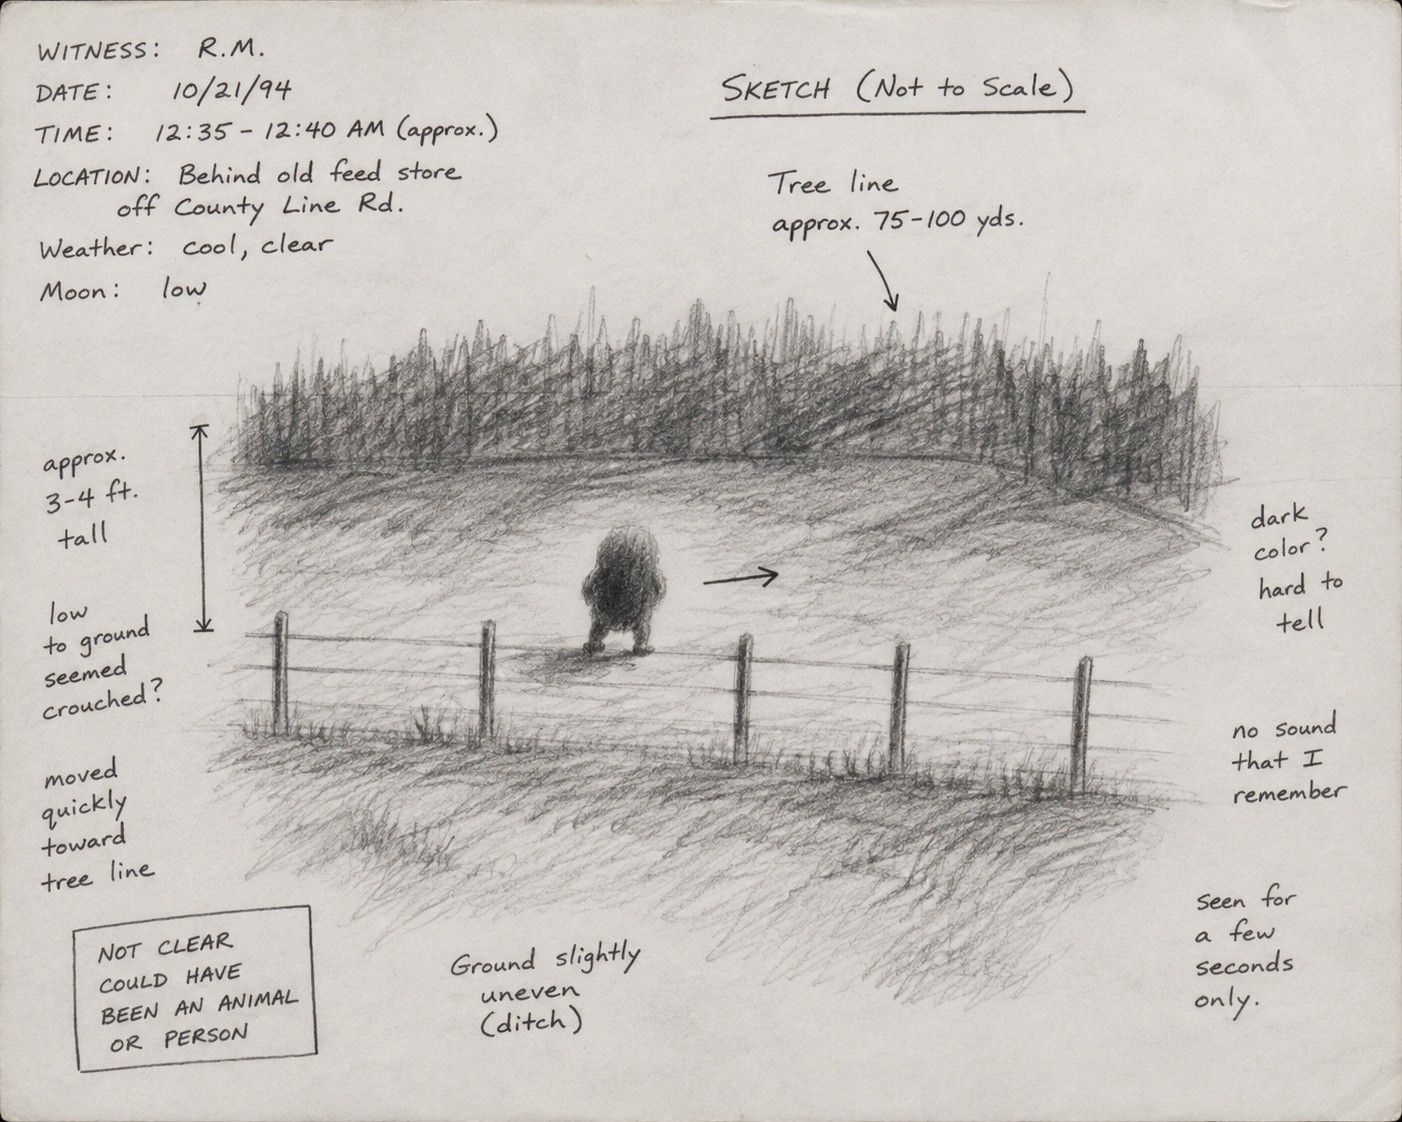 WITNESS: R.M.
DATE: 10/21/94
TIME: 12:35 - 12:40 AM (approx.)
LOCATION: Behind old feed store
off County Line Rd.
Weather: cool, clear
Moon: low
SKETCH (Not to Scale)
Tree line
approx. 75-100 yds.
approx.
3-4 ft.
tall
low
to ground
seemed
crouched?
moved
quickly
toward
tree line
NOT CLEAR
COULD HAVE
BEEN AN ANIMAL
OR PERSON
Ground slightly
uneven
(ditch)
dark
color?
hard to
tell
no sound
that I
remember
seen for
a few
seconds
only.